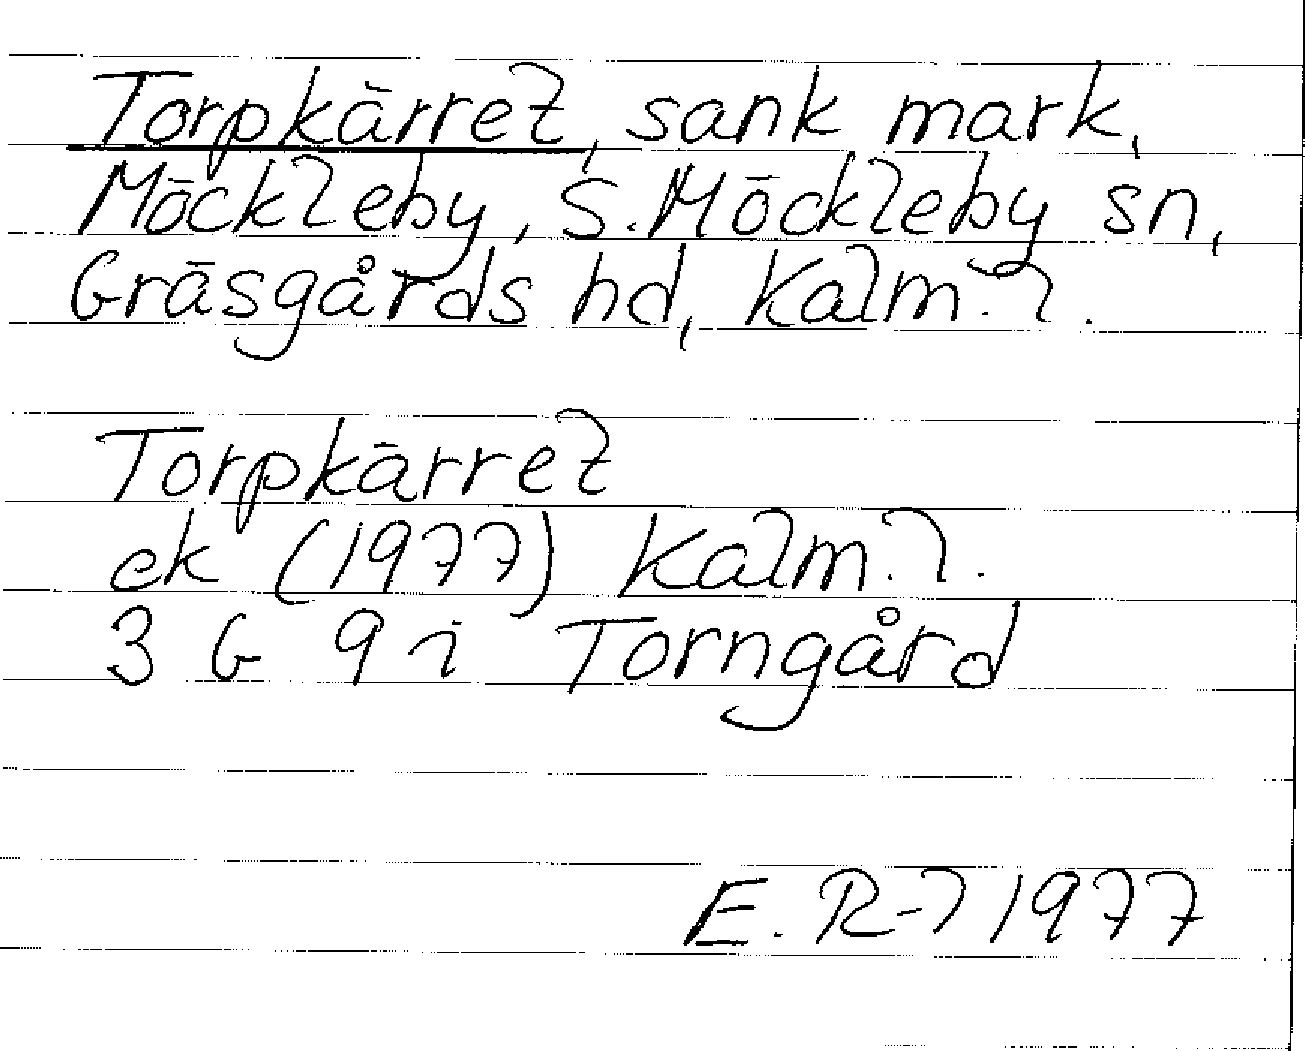 Torpkärret, sank mark,
Möckleby, S. Möckleby sn,
Gräsgårds hd, Kalm. l.
Torpkärret
ek (1977) Kalm. l.
3 G 9 i Torngård
E. R-l 1977